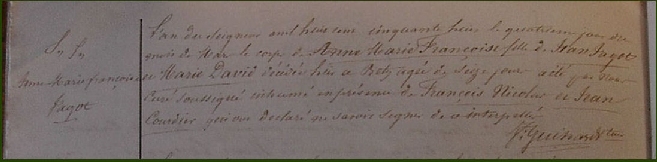 S. f.
Anne Marie françoise
Jagot
L'an du seigneur mil huit cent cinquante huit le quatrième jour du
mois de Mai le corps de Anne Marie Françoise fille de Jean Jagot
et Marie David décédée hier a agée de seize jour a été par nous
Curé soussigné inhumé en présence de François Nicolas et Jean
Courdier qui ont declaré ne savoir signer de ce interpellé